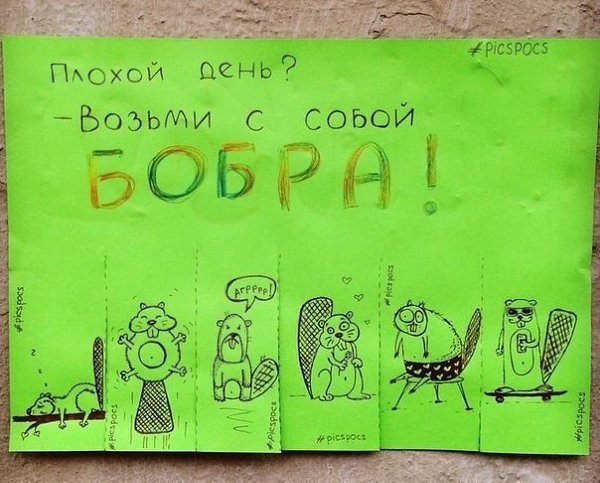 #PICSPOCS
Плохой день?
-Возьми с собой
БОБРА!
#picspocs
#picspocs
Агрррр!
#picspocs
#picspocs
#picspocs
#picspocs